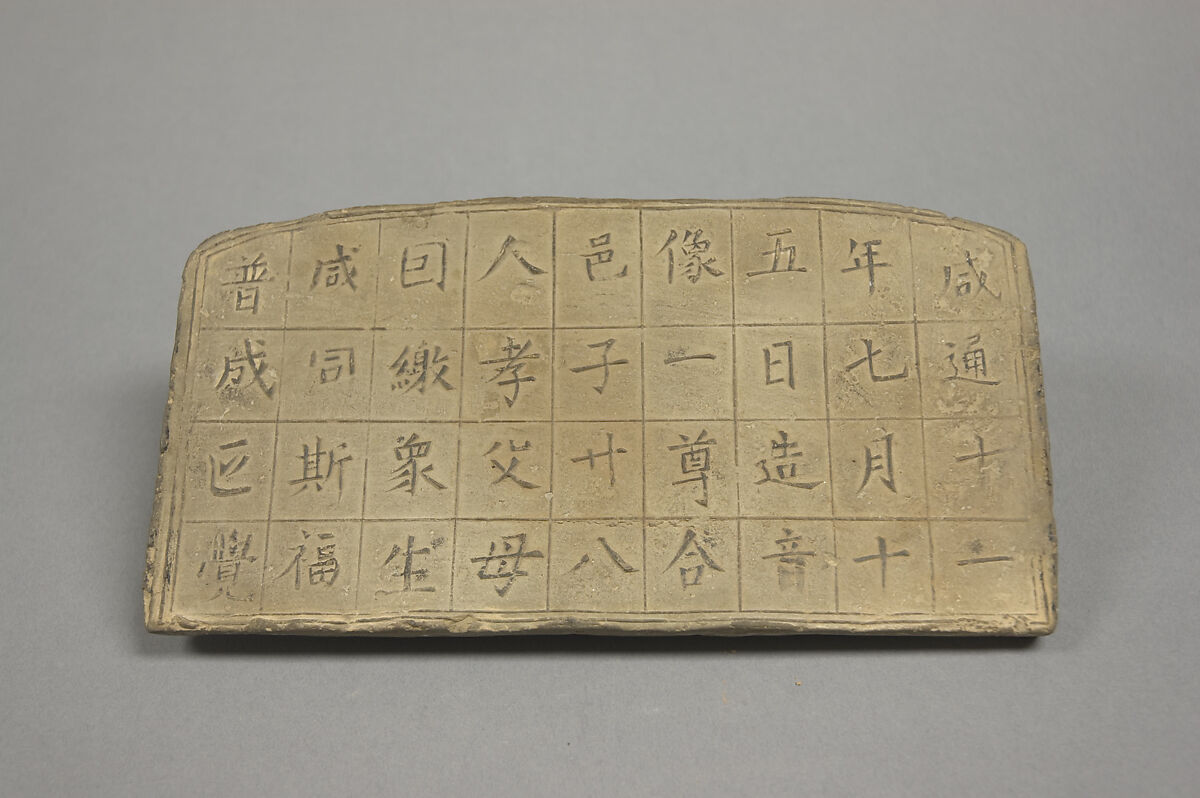 咸通十一
年七月十
五日造音
像一尊合
邑子廿八
人孝父母
囙繳衆生
咸同斯福
普成㔷覺